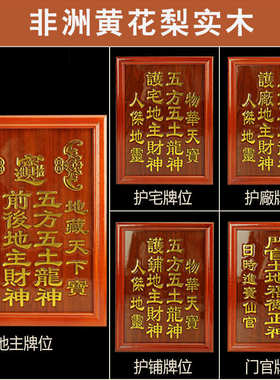 非洲黄花梨实木
招財進寶
地藏天下寶
五方五土龍神
前後地主財神
地主牌位
物華天寶
五方五土龍神
護宅地主財神
人傑地靈
护宅牌位
護廠地主財神
人傑地靈
护廠牌位
物華天寶
五方五土龍神
護鋪地主財神
人傑地靈
护铺牌位
日時進寶仙官
门官牌位